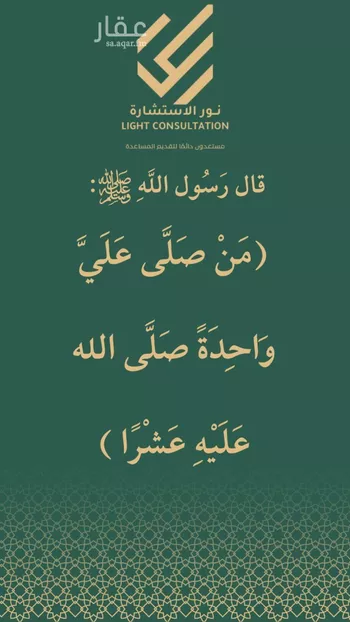 عقار
sa.aqar.fm
نور الاستشارة
LIGHT CONSULTATION
مستعدون دائمًا لتقديم المساعدة
قال رَسُول اللَّهِ ﷺ:
(مَنْ صَلَّى عَلَيَّ
وَاحِدَةً صَلَّى الله
عَلَيْهِ عَشْرًا )